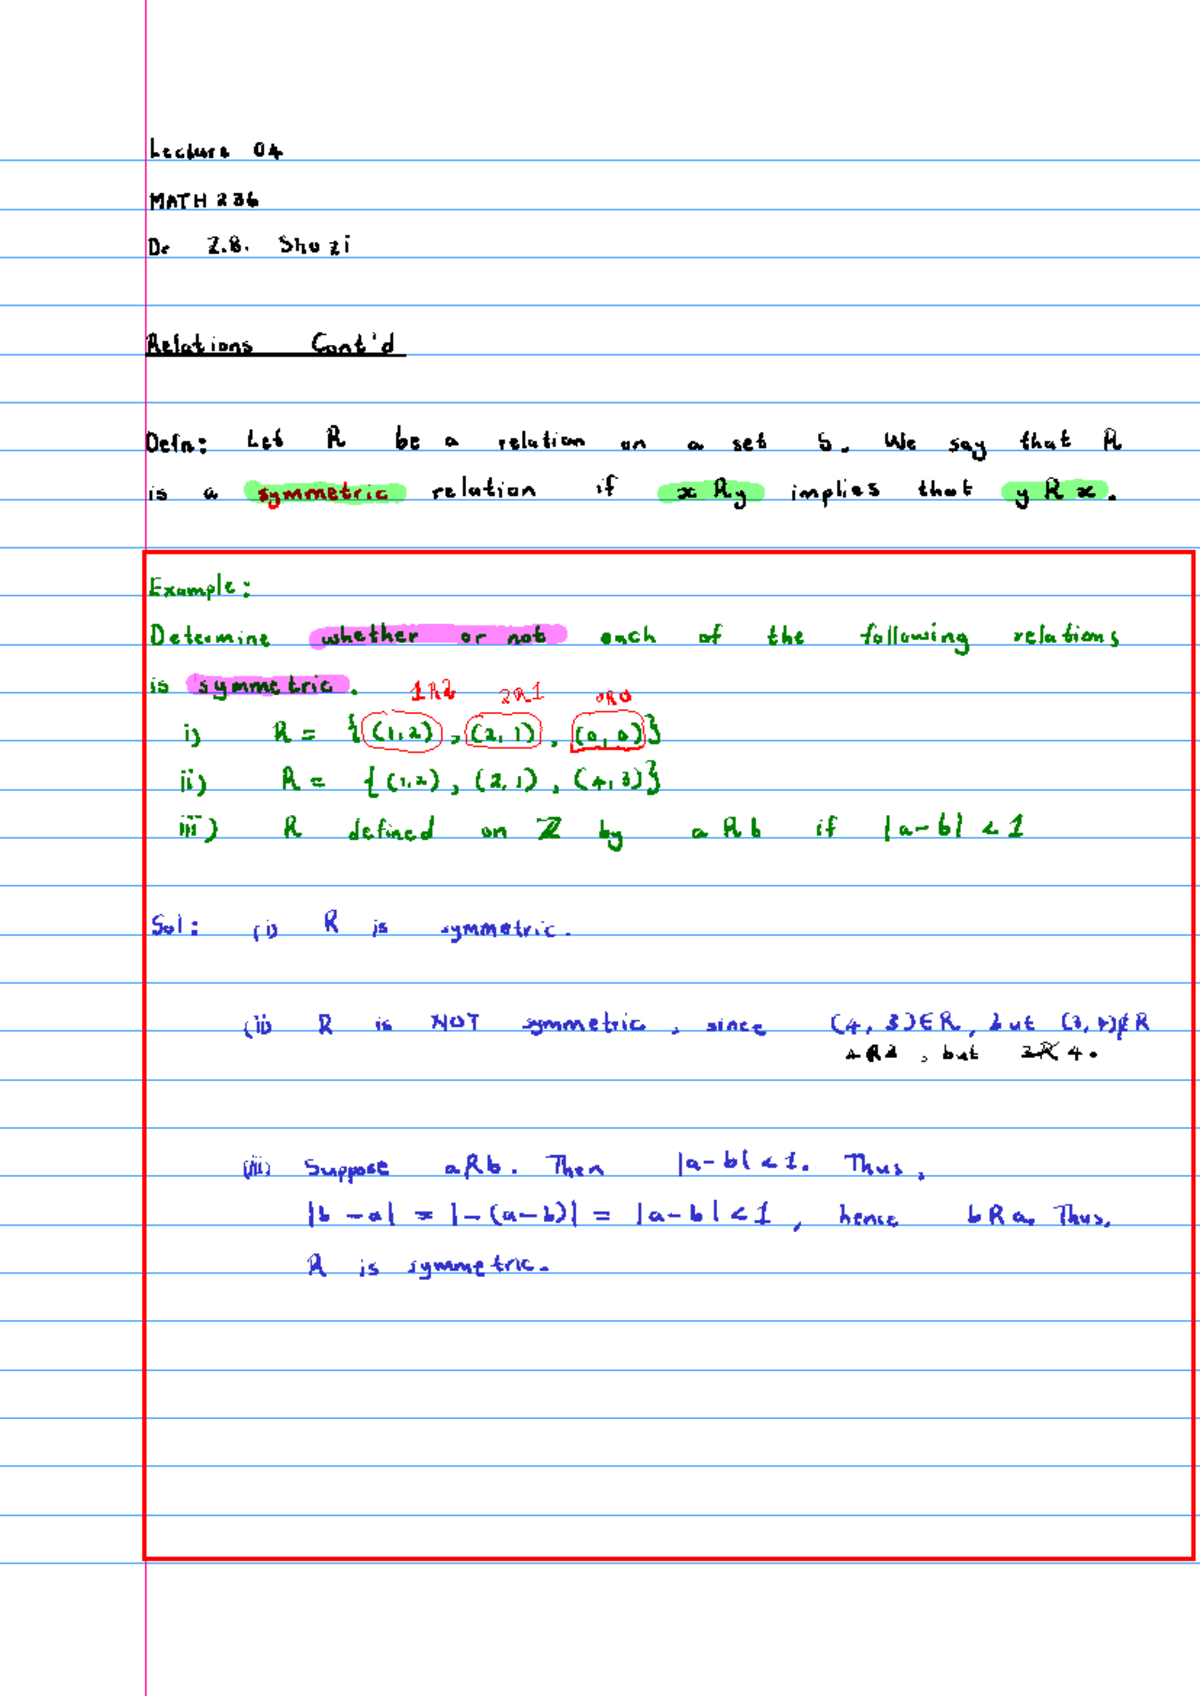 Lecture 04
MATH 236
Dr Z.B. Shozi
Relations Cont'd
Defn: Let R be a relation on a set S. We say that R
is a symmetric relation if x R y implies that y R x.
Example:
Determine whether or not each of the following relations
is symmetric.
1R2 2R1 0R0
i) R = {(1,2), (2,1), (0,0)}
ii) R = {(1,2), (2,1), (4,3)}
iii) R defined on ℤ by a R b if |a-b| < 1
Sol: (i) R is symmetric.
(ii) R is NOT symmetric, since (4,3)∈R, but (3,4)∉R
4R3, but 3R̸4.
(iii) Suppose aRb. Then |a-b| < 1. Thus,
|b-a| = |-(a-b)| = |a-b| < 1, hence bRa. Thus,
R is symmetric.